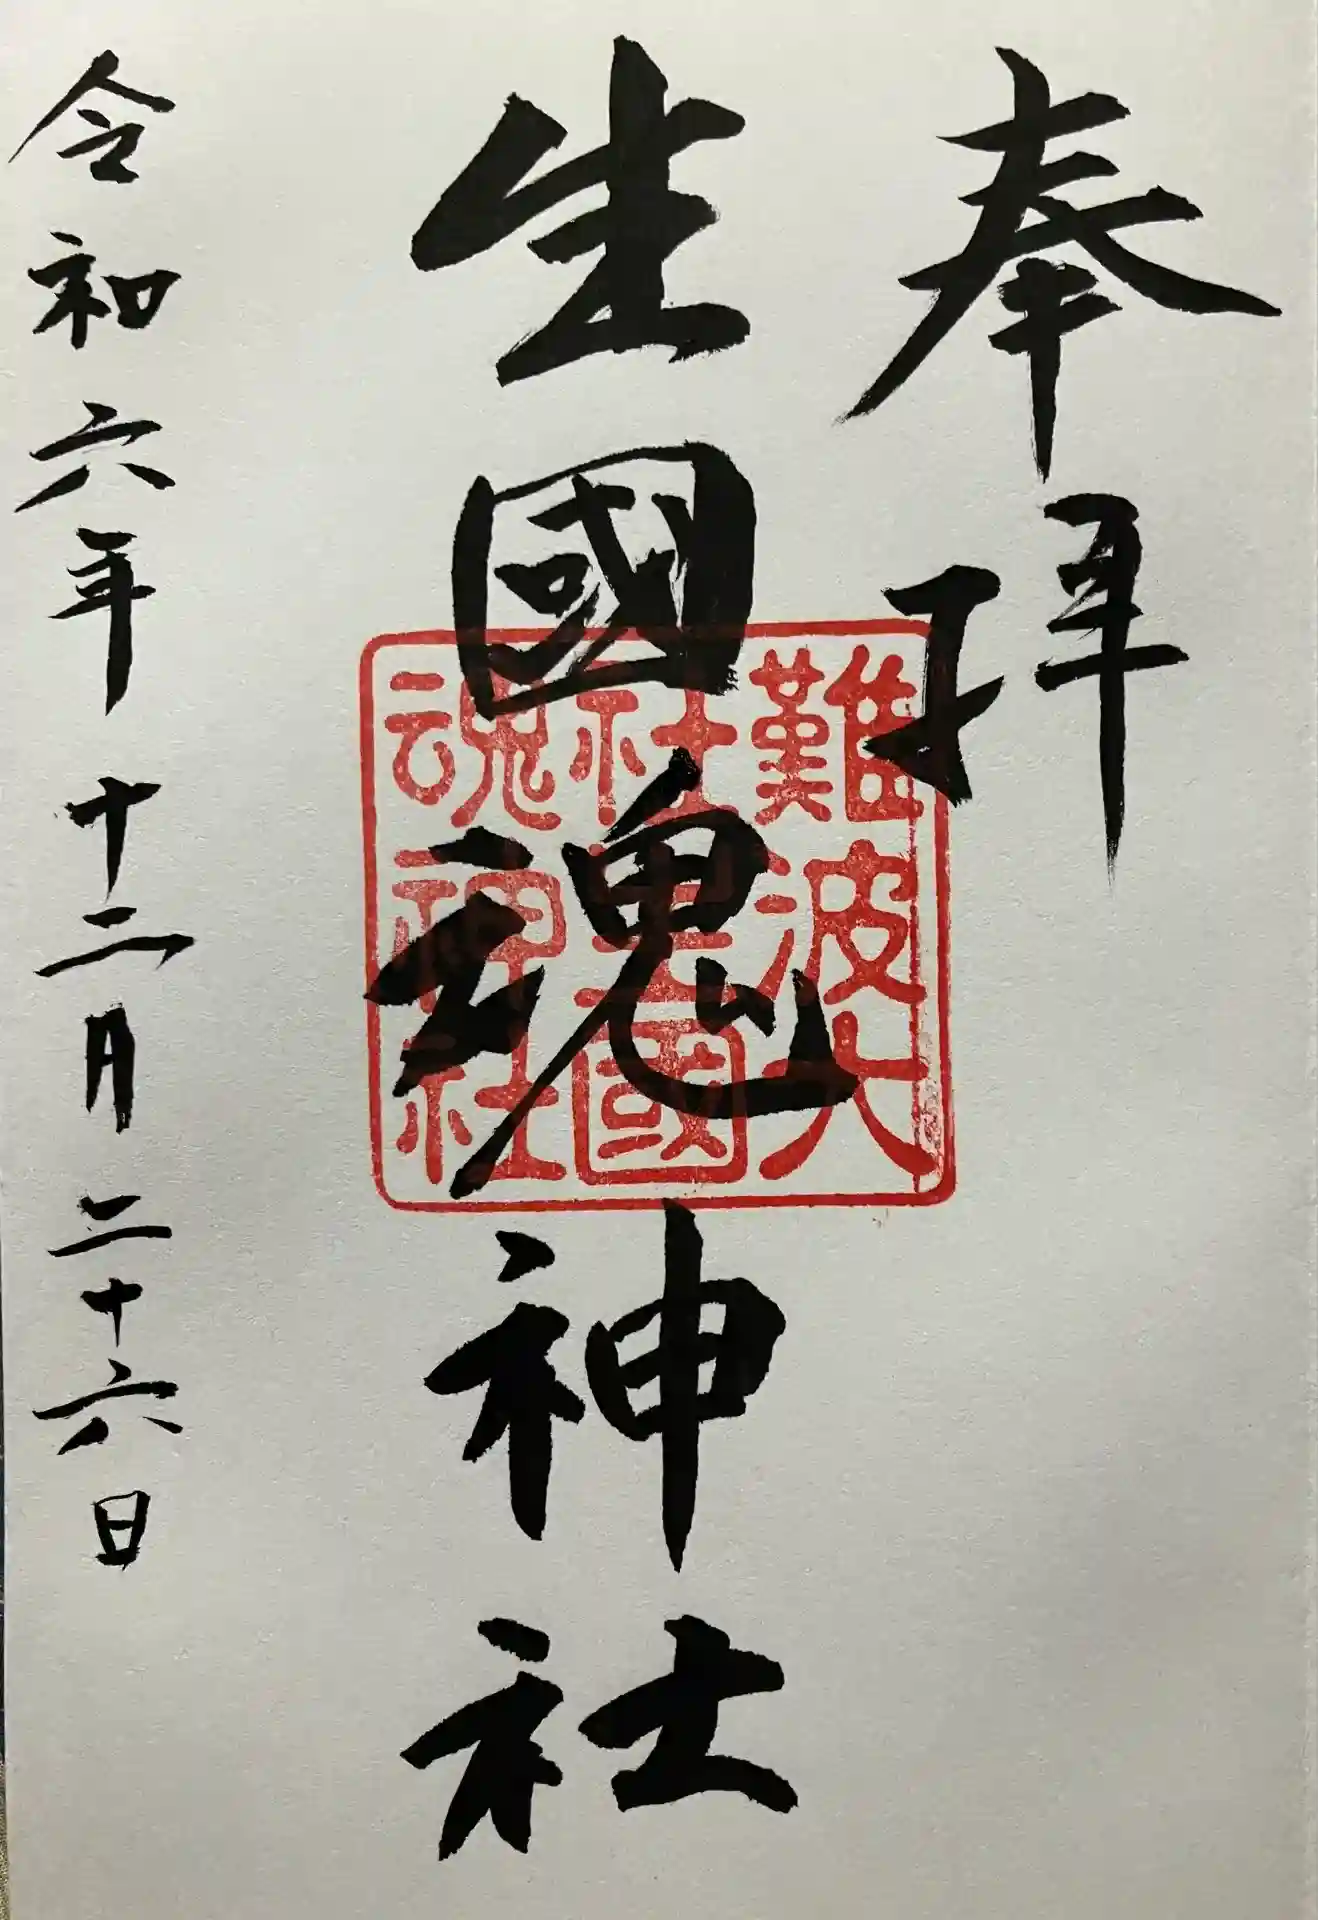 奉拜
生國魂神社
難波大
社生國
魂神社
令和六年十二月二十六日